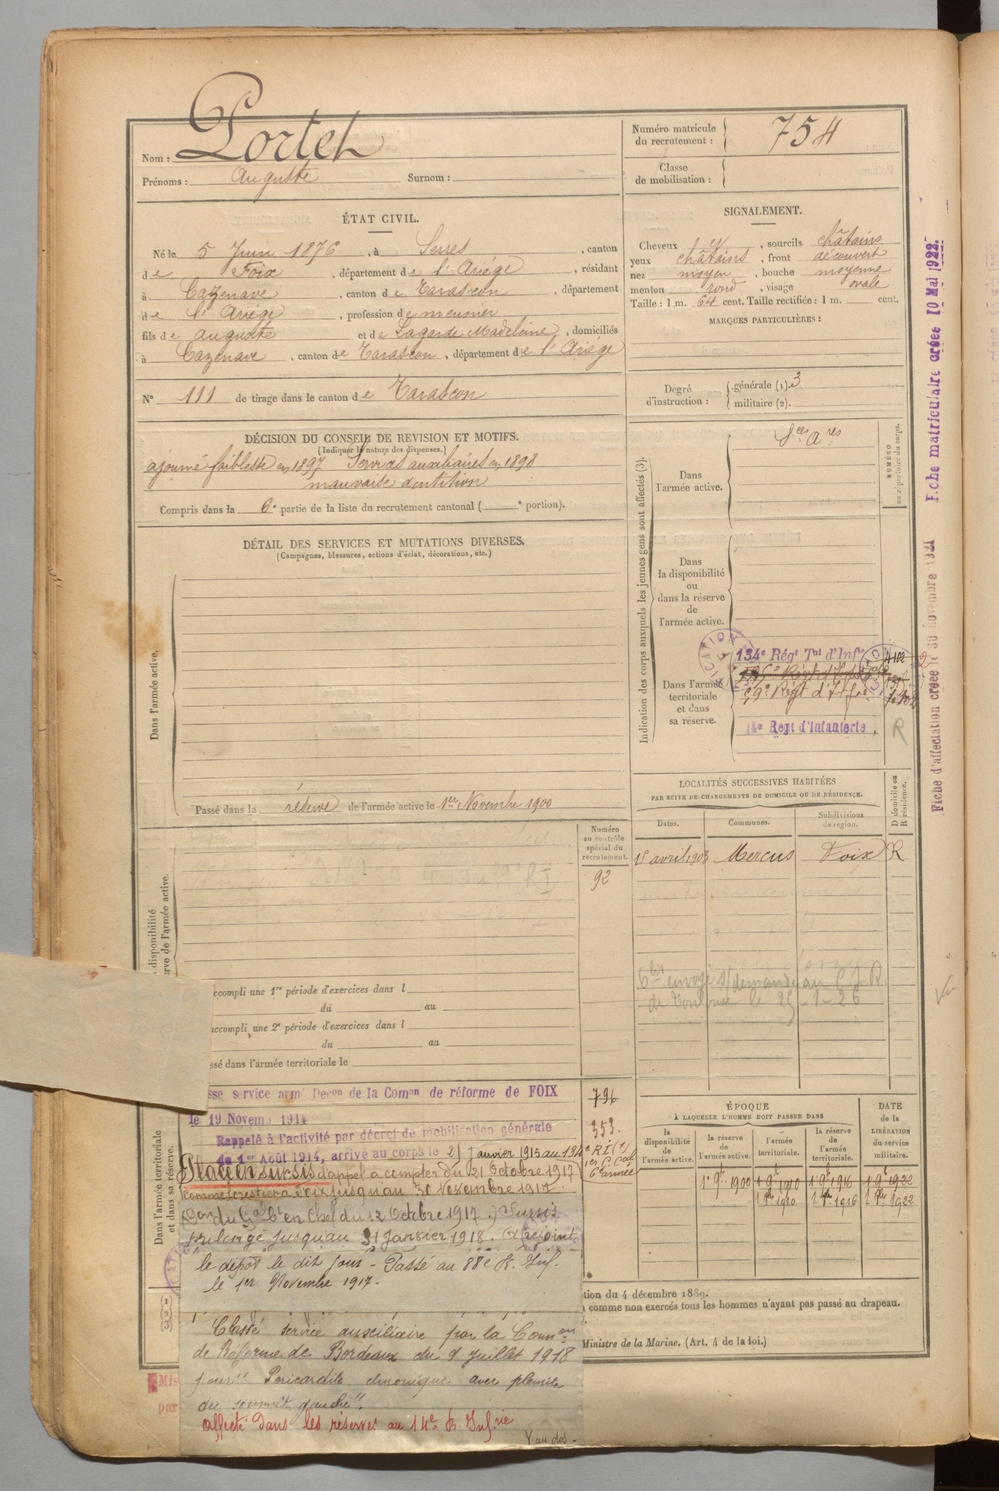 Nom : Portet
Prénoms : Auguste Surnom :
Numéro matricule du recrutement : 754
Classe de mobilisation :
ÉTAT CIVIL.
Né le 5 Juin 1876, à Serres, canton
de Foix, département de l'Ariége, résidant
à Cazenave, canton de Tarascon, département
de l'Ariége, profession de meunier
fils de Auguste et de Lagarde Madeleine, domiciliés
à Cazenave, canton de Tarascon, département de l'Ariége
N° 111 de tirage dans le canton de Tarascon
SIGNALEMENT.
Cheveux et, sourcils châtains
yeux châtains, front découvert
nez moyen, bouche moyenne
menton rond, visage ovale
Taille : 1 m. 64 cent. Taille rectifiée : 1 m. cent.
MARQUES PARTICULIÈRES :
Degré d'instruction : générale (1). 3
militaire (2).
DÉCISION DU CONSEIL DE REVISION ET MOTIFS.
(Indiquer la nature des dispenses.)
ajourné faiblesse en 1897 Services auxiliaires en 1898
mauvaise dentition
Compris dans la 6e partie de la liste du recrutement cantonal ( e portion).
DÉTAIL DES SERVICES ET MUTATIONS DIVERSES.
(Campagnes, blessures, actions d'éclat, décorations, etc.)
Dans l'armée active.
Passé dans la réserve de l'armée active le 1er Novembre 1900
Indication des corps auxquels les jeunes gens sont affectés (3).
NUMÉRO au répertoire du corps.
Dans l'armée active.
Dans la disponibilité ou dans la réserve de l'armée active.
Dans l'armée territoriale et dans sa réserve.
134e Régt Tal d'Infie
59e Régt d'Inf
Regt d'Infanterie
R
LOCALITÉS SUCCESSIVES HABITÉES
PAR SUITE DE CHANGEMENTS DE DOMICILE OU DE RÉSIDENCE.
Dates. Communes. Subdivisions de région. D domicile ou R résidence.
15 avril 1903 Mercus Foix R
envoyé s/demande au
de Toulouse le 25-1-26
Numéro au contrôle spécial du recrutement.
92
disponibilité
rve de l'armée active.
accompli une 1re période d'exercices dans l
du au
accompli une 2e période d'exercices dans l
du au
ssé dans l'armée territoriale le
Dans l'armée territoriale et dans sa réserve.
sse service armé Decon de la Comon de réforme de FOIX
le 19 Novem 1914
796
353
Rappelé à l'activité par décret de mobilisation générale
du 1er Août 1914, arrivé au corps le 21 Janvier 1915 au
Placé en sursis d'appel à compter du 21 Octobre 1917
jusqu'au 30 Novembre 1917.
Don du Gal Ct en Chef du 12 Octobre 1917. Sursis
prolongé jusqu'au 31 Janvier 1918. A rejoint
le dépôt le dit jour - Passé au 88e R. Inf.
le 1er Novembre 1917.
Classé service auxiliaire par la Comon
de Réforme de Bordeaux du 9 Juillet 1918
pour "Pericardite chronique avec pleurite
du sommet gauche".
Affecté dans les réserves au 14e R Infrie
V. au dos.
ÉPOQUE
À LAQUELLE L'HOMME DOIT PASSER DANS
la disponibilité de l'armée active.
la réserve de l'armée active.
l'armée territoriale.
la réserve de l'armée territoriale.
DATE de la LIBÉRATION du service militaire.
1 9bre 1900 1 9bre 1910 1 9bre 1916 1 9bre 1922
1 8bre 1910 1 8bre 1916 1 8bre 1922
tion du 4 décembre 1889.
comme non exercés tous les hommes n'ayant pas passé au drapeau.
Ministre de la Marine. (Art. 4 de la loi.)
Fiche d'affectation créée le 30 Novembre 1921
Fiche matriculaire créée 10 Mai 1922.